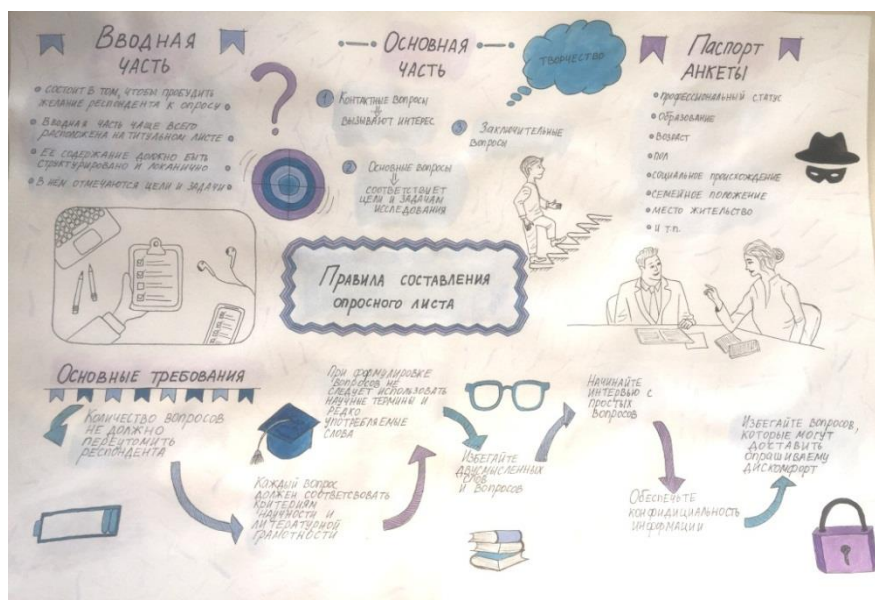 Вводная
часть
• состоит в том, чтобы пробудить
желание респондента к опросу
• Вводная часть чаще всего
расположена на титульном листе
• Её содержание должно быть
структурировано и локанично
• В нём отмечаются цели и задачи
Основная
часть
1 Контактные вопросы
вызывают интерес
2 Основные вопросы
соответствует
цели и задачам
исследования
3 Заключительные
вопросы
творчество
Паспорт
анкеты
• профессиональный статус
• образование
• возраст
• пол
• социальное происхождение
• семейное положение
• место жительство
• и т.п.
Правила составления
опросного листа
Основные требования
Количество вопросов
не должно
переутомить
респондента
Каждый вопрос
должен соответсвовать
критериям
научности и
литературной
грамотности
При формулировке
вопросов не
следует использовать
научные термины и
редко
употребляемые
слова
Избегайте
двусмисленных
слов
и вопросов
Начинайте
интервью с
простых
вопросов
Обеспечьте
конфидициальность
информации
Избегайте вопросов,
которые могут
доставить
опрашиваему
дискомфорт